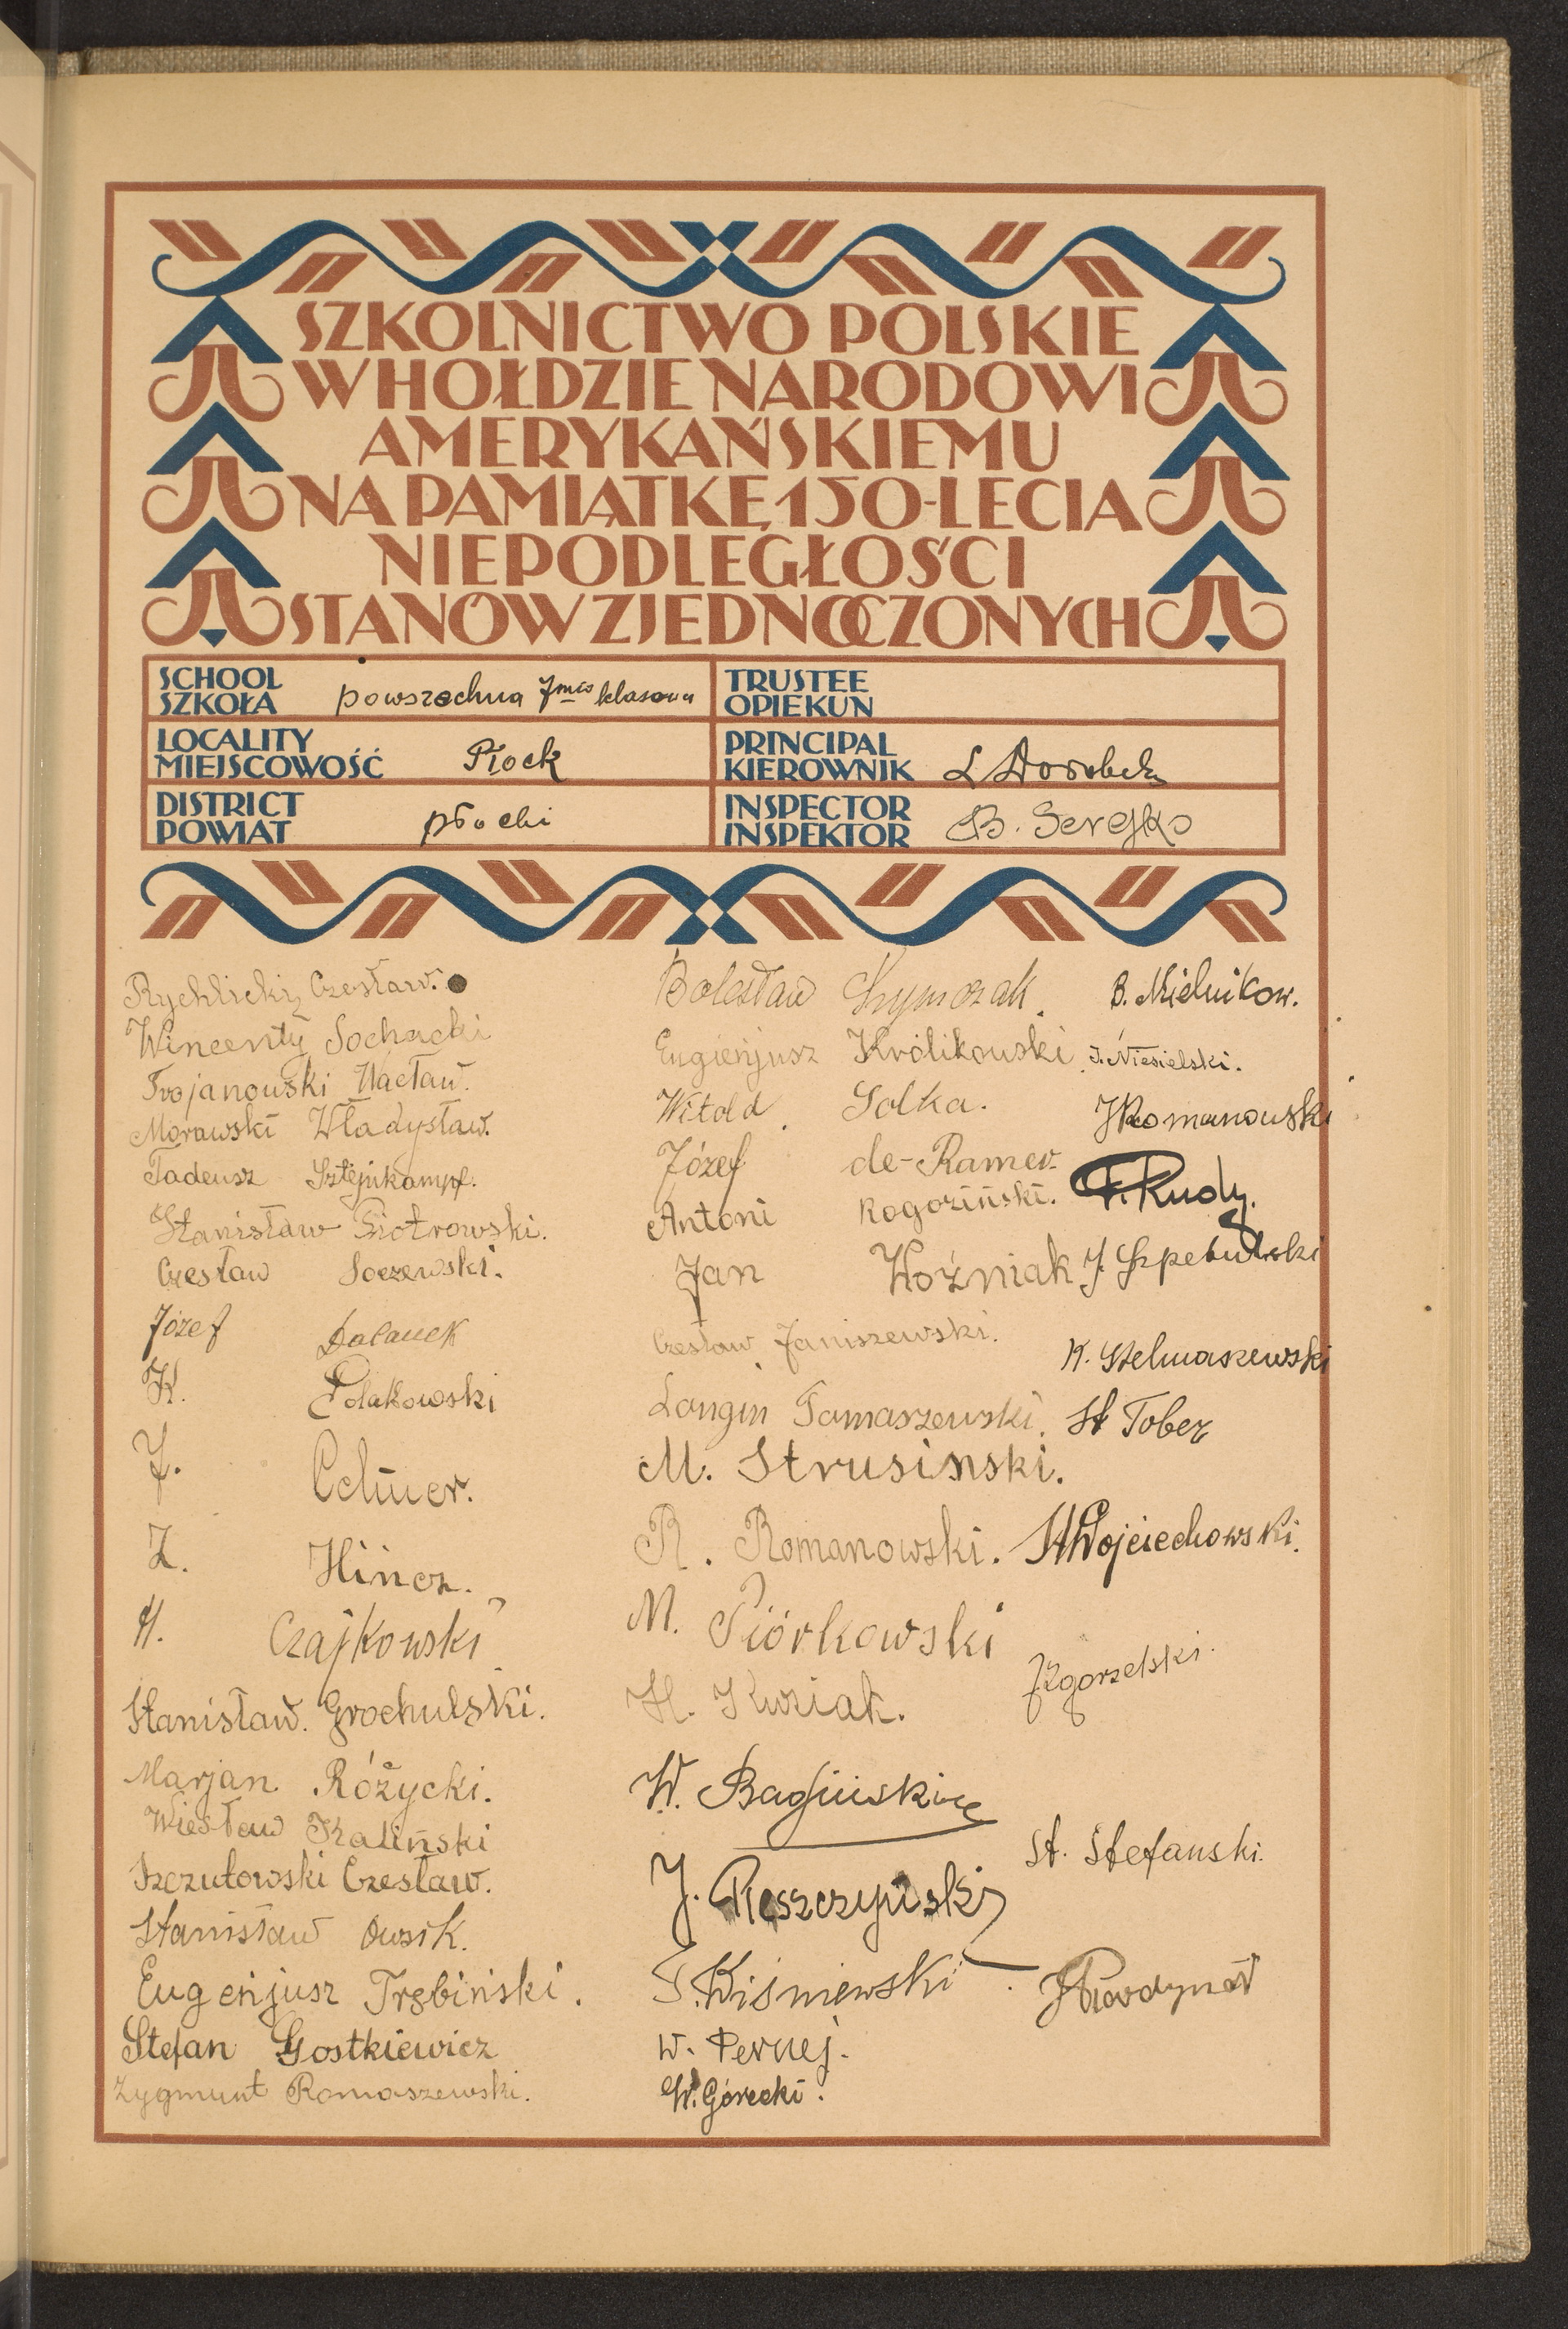 SZKOLNICTWO POLSKIE
W HOŁDZIE NARODOWI
AMERYKAŃSKIEMU
NA PAMIĄTKĘ 150-LECIA
NIEPODLEGŁOŚCI
STANÓW ZJEDNOCZONYCH
SCHOOL
SZKOŁA powszechna 7mio klasowa
TRUSTEE
OPIEKUN
LOCALITY
MIEJSCOWOŚĆ Płock
PRINCIPAL
KIEROWNIK L Dorobek
DISTRICT
POWIAT płocki
INSPECTOR
INSPEKTOR B. Serejko
Rychlicki Czesław.
Wincenty Sochacki
Trojanowski Wacław.
Morawski Władysław.
Tadeusz Sztejnkampf.
Stanisław Piotrowski.
Czesław Soczewski.
Józef Dalanek
K. Polakowski
J. Celmer.
Z. Hincz.
H. Czajkowski
Stanisław Grochulski.
Marjan Różycki.
Wiesław Kaliński
Szczutowski Czesław.
Stanisław Owsik.
Eugenjusz Trębiński.
Stefan Gostkiewicz
Zygmunt Romaszewski.
Bolesław Szymczak.
Eugienjusz Królikowski
Witold Solka.
Józef de-Ramer.
Antoni Rogoziński.
Jan Woźniak
Czesław Janiszewski.
Longin Tomaszewski.
M. Strusiński.
R. Romanowski.
M. Piórkowski
H. Kuziak.
W. Bagiński
J. Pieszczyński
Wiśniewski
W. Pernej.
W. Górecki.
B. Mielnikow.
J. Niesielski.
J Romanowski
F. Rudy.
J. Szpetulski
K. Stelmaszewski
St Tober
St Wojciechowski.
J Zgorzelski.
St. Stefanski.